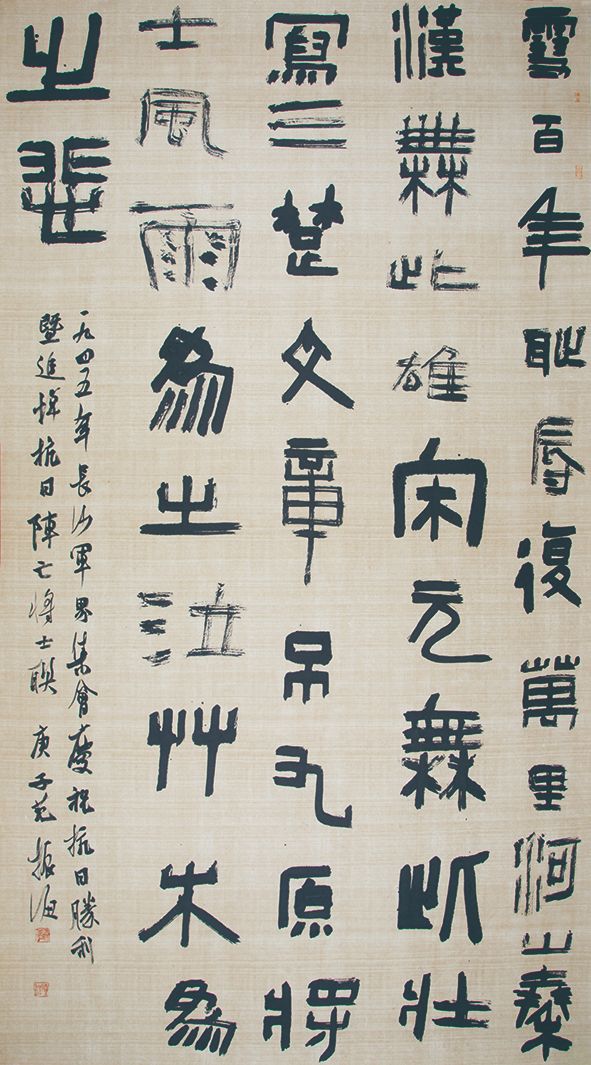 雪百年耻辱復萬里河山秦
漢無此雄宋元無此壯
寫三楚文章吊九原將
士風雨為之泣艸木為
之悲
一九四五年長沙軍界集會慶祝抗日勝利
暨追悼抗日陣亡將士聯 庚子